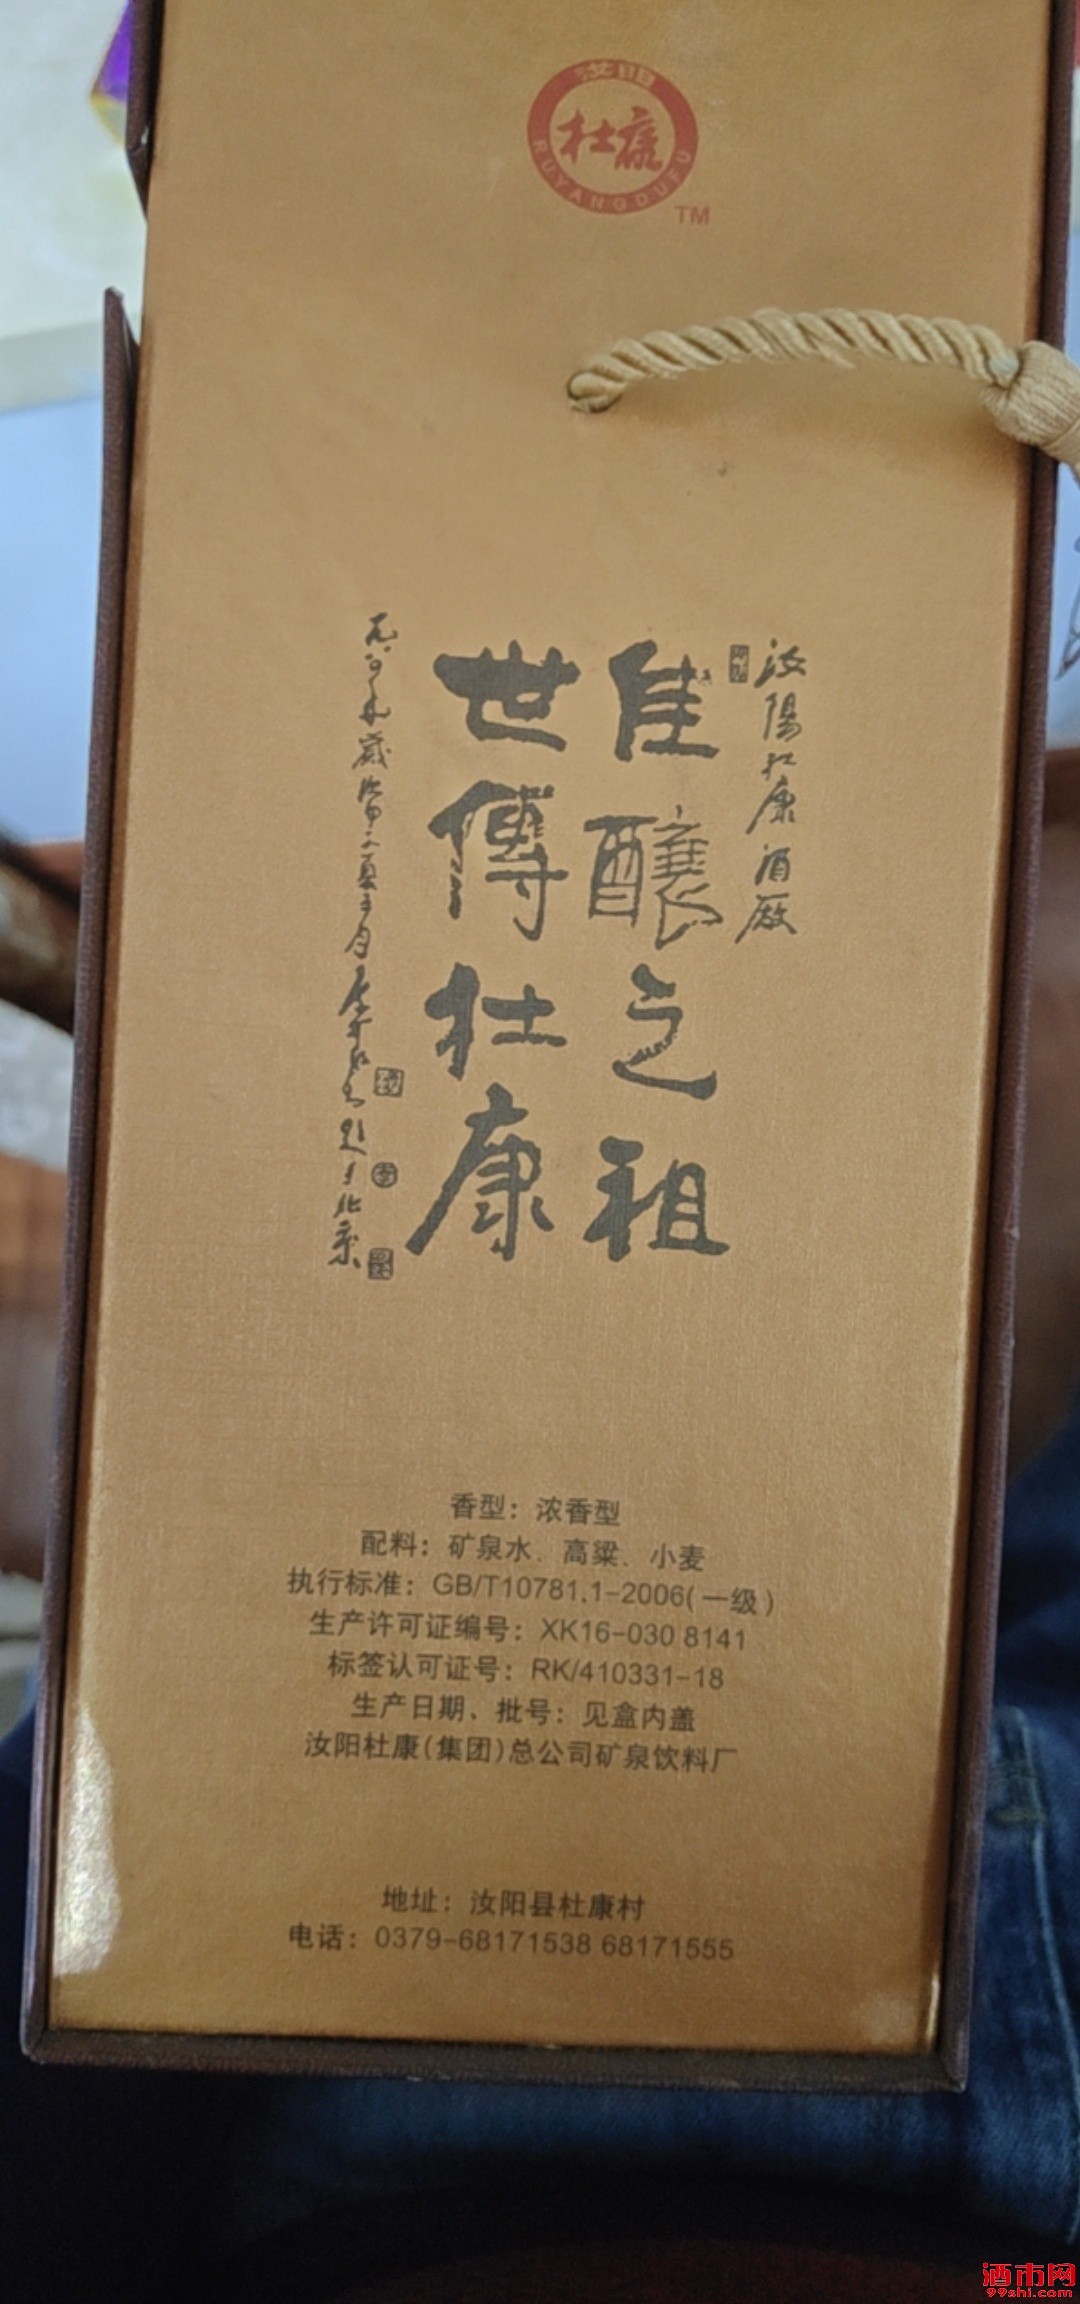 汝阳
杜康
RUYANGDUFU
TM
汝陽杜康酒廠
佳釀之祖
世傳杜康
香型：浓香型
配料：矿泉水、高粱、小麦
执行标准：GB/T10781.1-2006(一级)
生产许可证编号：XK16-030 8141
标签认可证号：RK/410331-18
生产日期、批号：见盒内盖
汝阳杜康(集团)总公司矿泉饮料厂
地址：汝阳县杜康村
电话：0379-68171538 68171555
酒市网
99shi.com